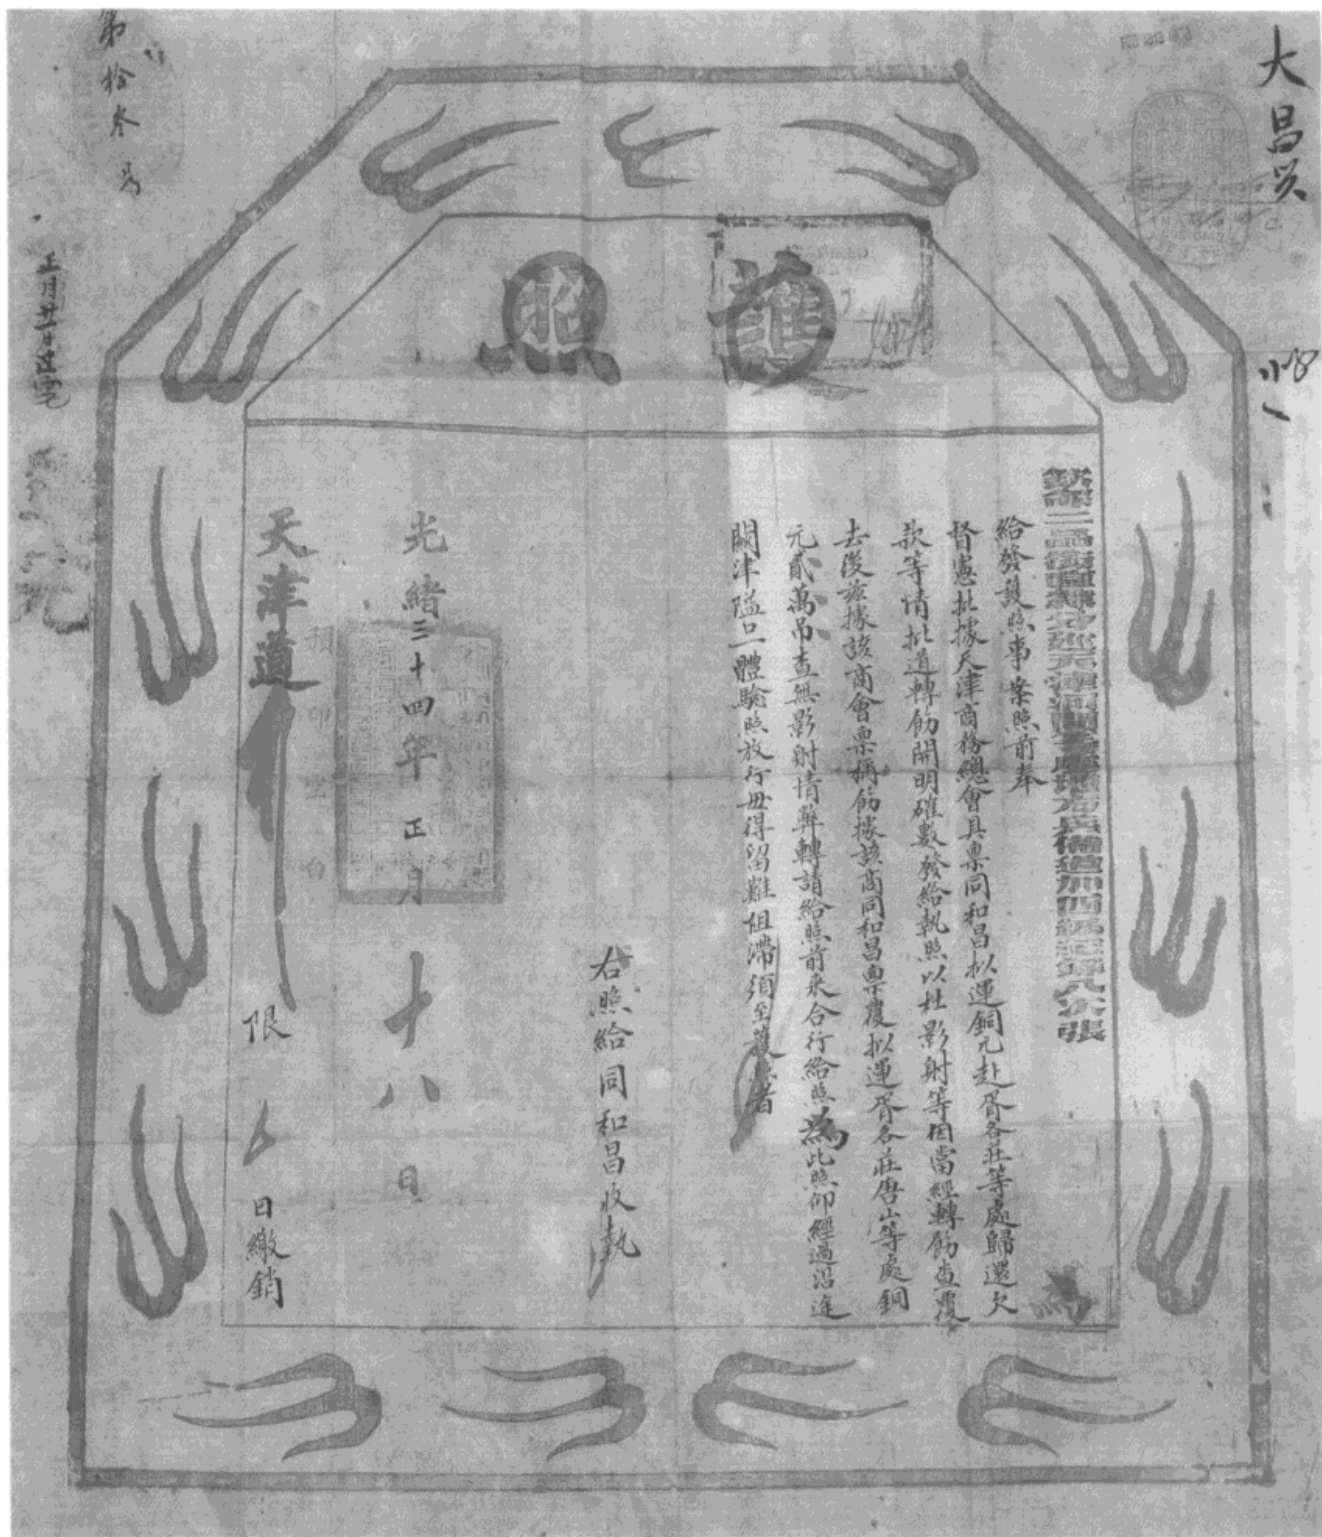 大昌兴
護照
欽命二品銜直隸分巡天津河間等處地方兵備道加四級紀錄八次張
為
給發護照事案照前奉
督憲批據天津商務總會具稟同和昌拟運銅元赴胥各莊等處歸還欠
款等情批道轉飭開明確數發給執照以杜影射等因當經轉飭查覆
去後茲據該商會稟稱飭據該商同和昌稟覆拟運胥各莊唐山等處銅
元貳萬吊查無影射情弊轉請給照前來合行給照為此照仰經過沿途
關津隘口一體驗照放行毋得留難阻滯須至護照者
右照給同和昌收執
光緒三十四年正月十八日
預印空白
天津道
限
日繳銷
第拾叁号
正月廿日